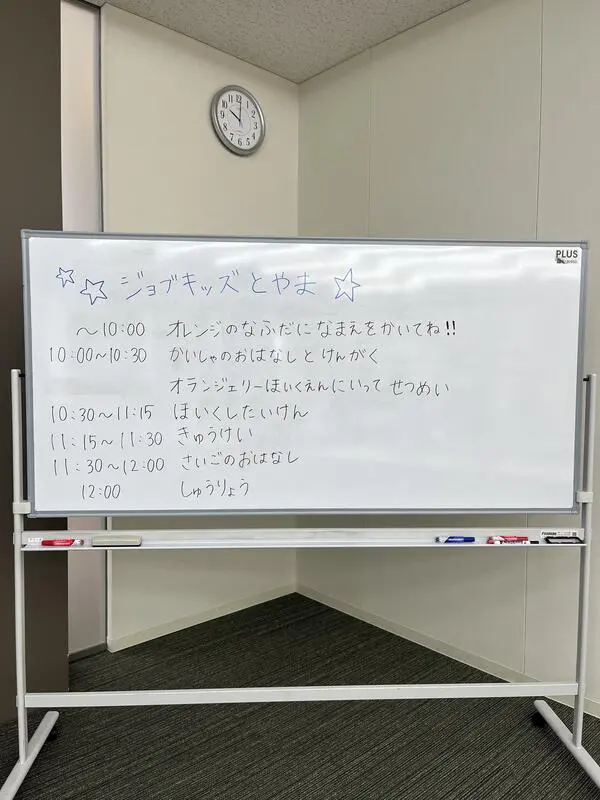 PLUS
☆☆ ジョブキッズとやま ☆
～10:00 オレンジのなふだになまえをかいてね!!
10:00～10:30 かいしゃのおはなしとけんがく
オランジェリーほいくえんにいって せつめい
10:30～11:15 ほいくしたいけん
11:15～11:30 きゅうけい
11:30～12:00 さいごのおはなし
12:00 しゅうりょう